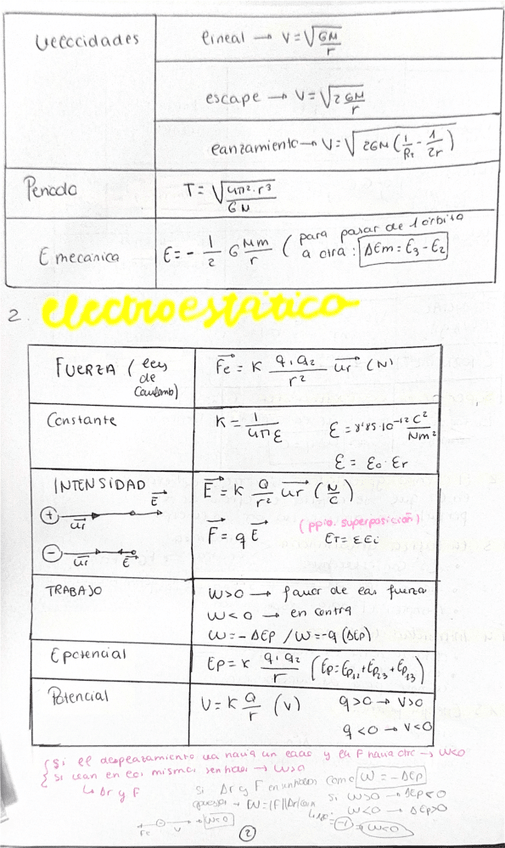 Velocidades
lineal → V = √(GM/r)
escape → V = √(2GM/r)
lanzamiento → V = √(2GM(1/R₁ - 1/2r))
Periodo
T = √(4π²·r³/GM)
E mecánica
E = - 1/2 G Mm/r ( para pasar de 1 órbita
a otra: ΔEm = E₃ - E₂
2. electroestática
FUERZA (ley
de
Coulomb)
Fe = K q₁q₂/r² ur (N)
Constante
K = 1/4πε
ε = 8'85·10⁻¹² C²/Nm²
ε = ε₀·εr
INTENSIDAD
E
+ ur
- ur E
E = K Q/r² ur (N/C)
F = q E
(ppio. superposición)
ET = ΣEi
TRABAJO
W>0 → favor de las fuerza
W<0 → en contra
W = -ΔEp / W = -q (ΔEp)
E potencial
Ep = K q₁q₂/r (Ep = Ep₁₂ + Ep₂₃ + Ep₁₃)
Potencial
V = K Q/r (V)
q>0 → V>0
q<0 → V<0
Si el desplazamiento va hacia un lado y la F hacia otro → W<0
Si van en el mismo sentido → W>0
↳ Δr y F
si Δr y F en
como W = -ΔEp
si W>0 → ΔEp<0
W<0 → ΔEp>0
Fe V W<0
(-1) W<0
2